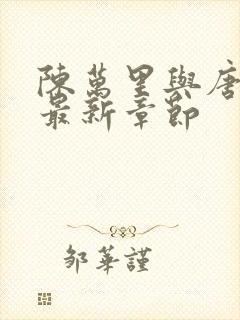 陳萬里與唐
最新章節
鄒華謹